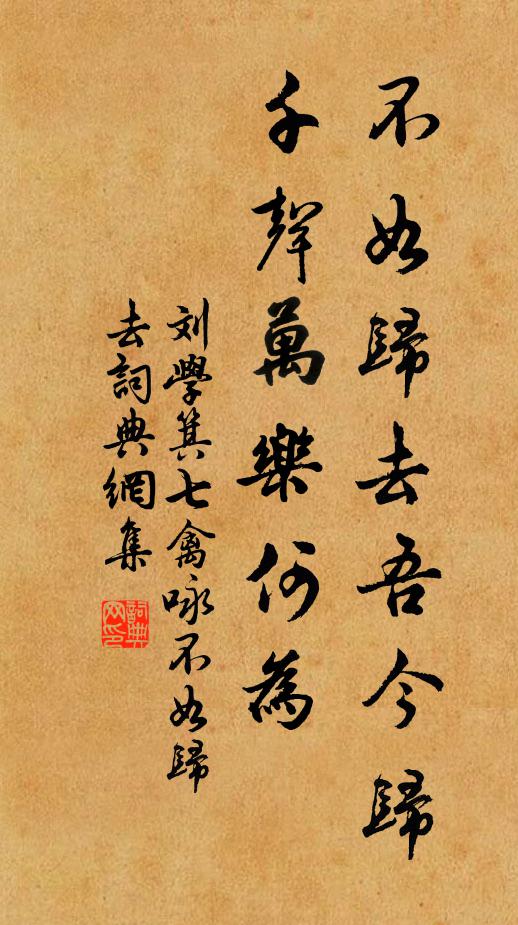 不如歸去吾今歸
千聲萬樂何為
刘學箕七禽咏不如歸
去詞典網集
詞典
网印